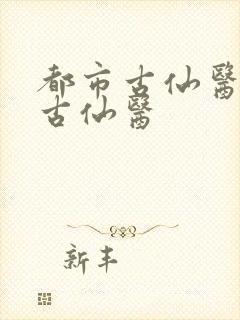 都市古仙醫
古仙醫
新丰